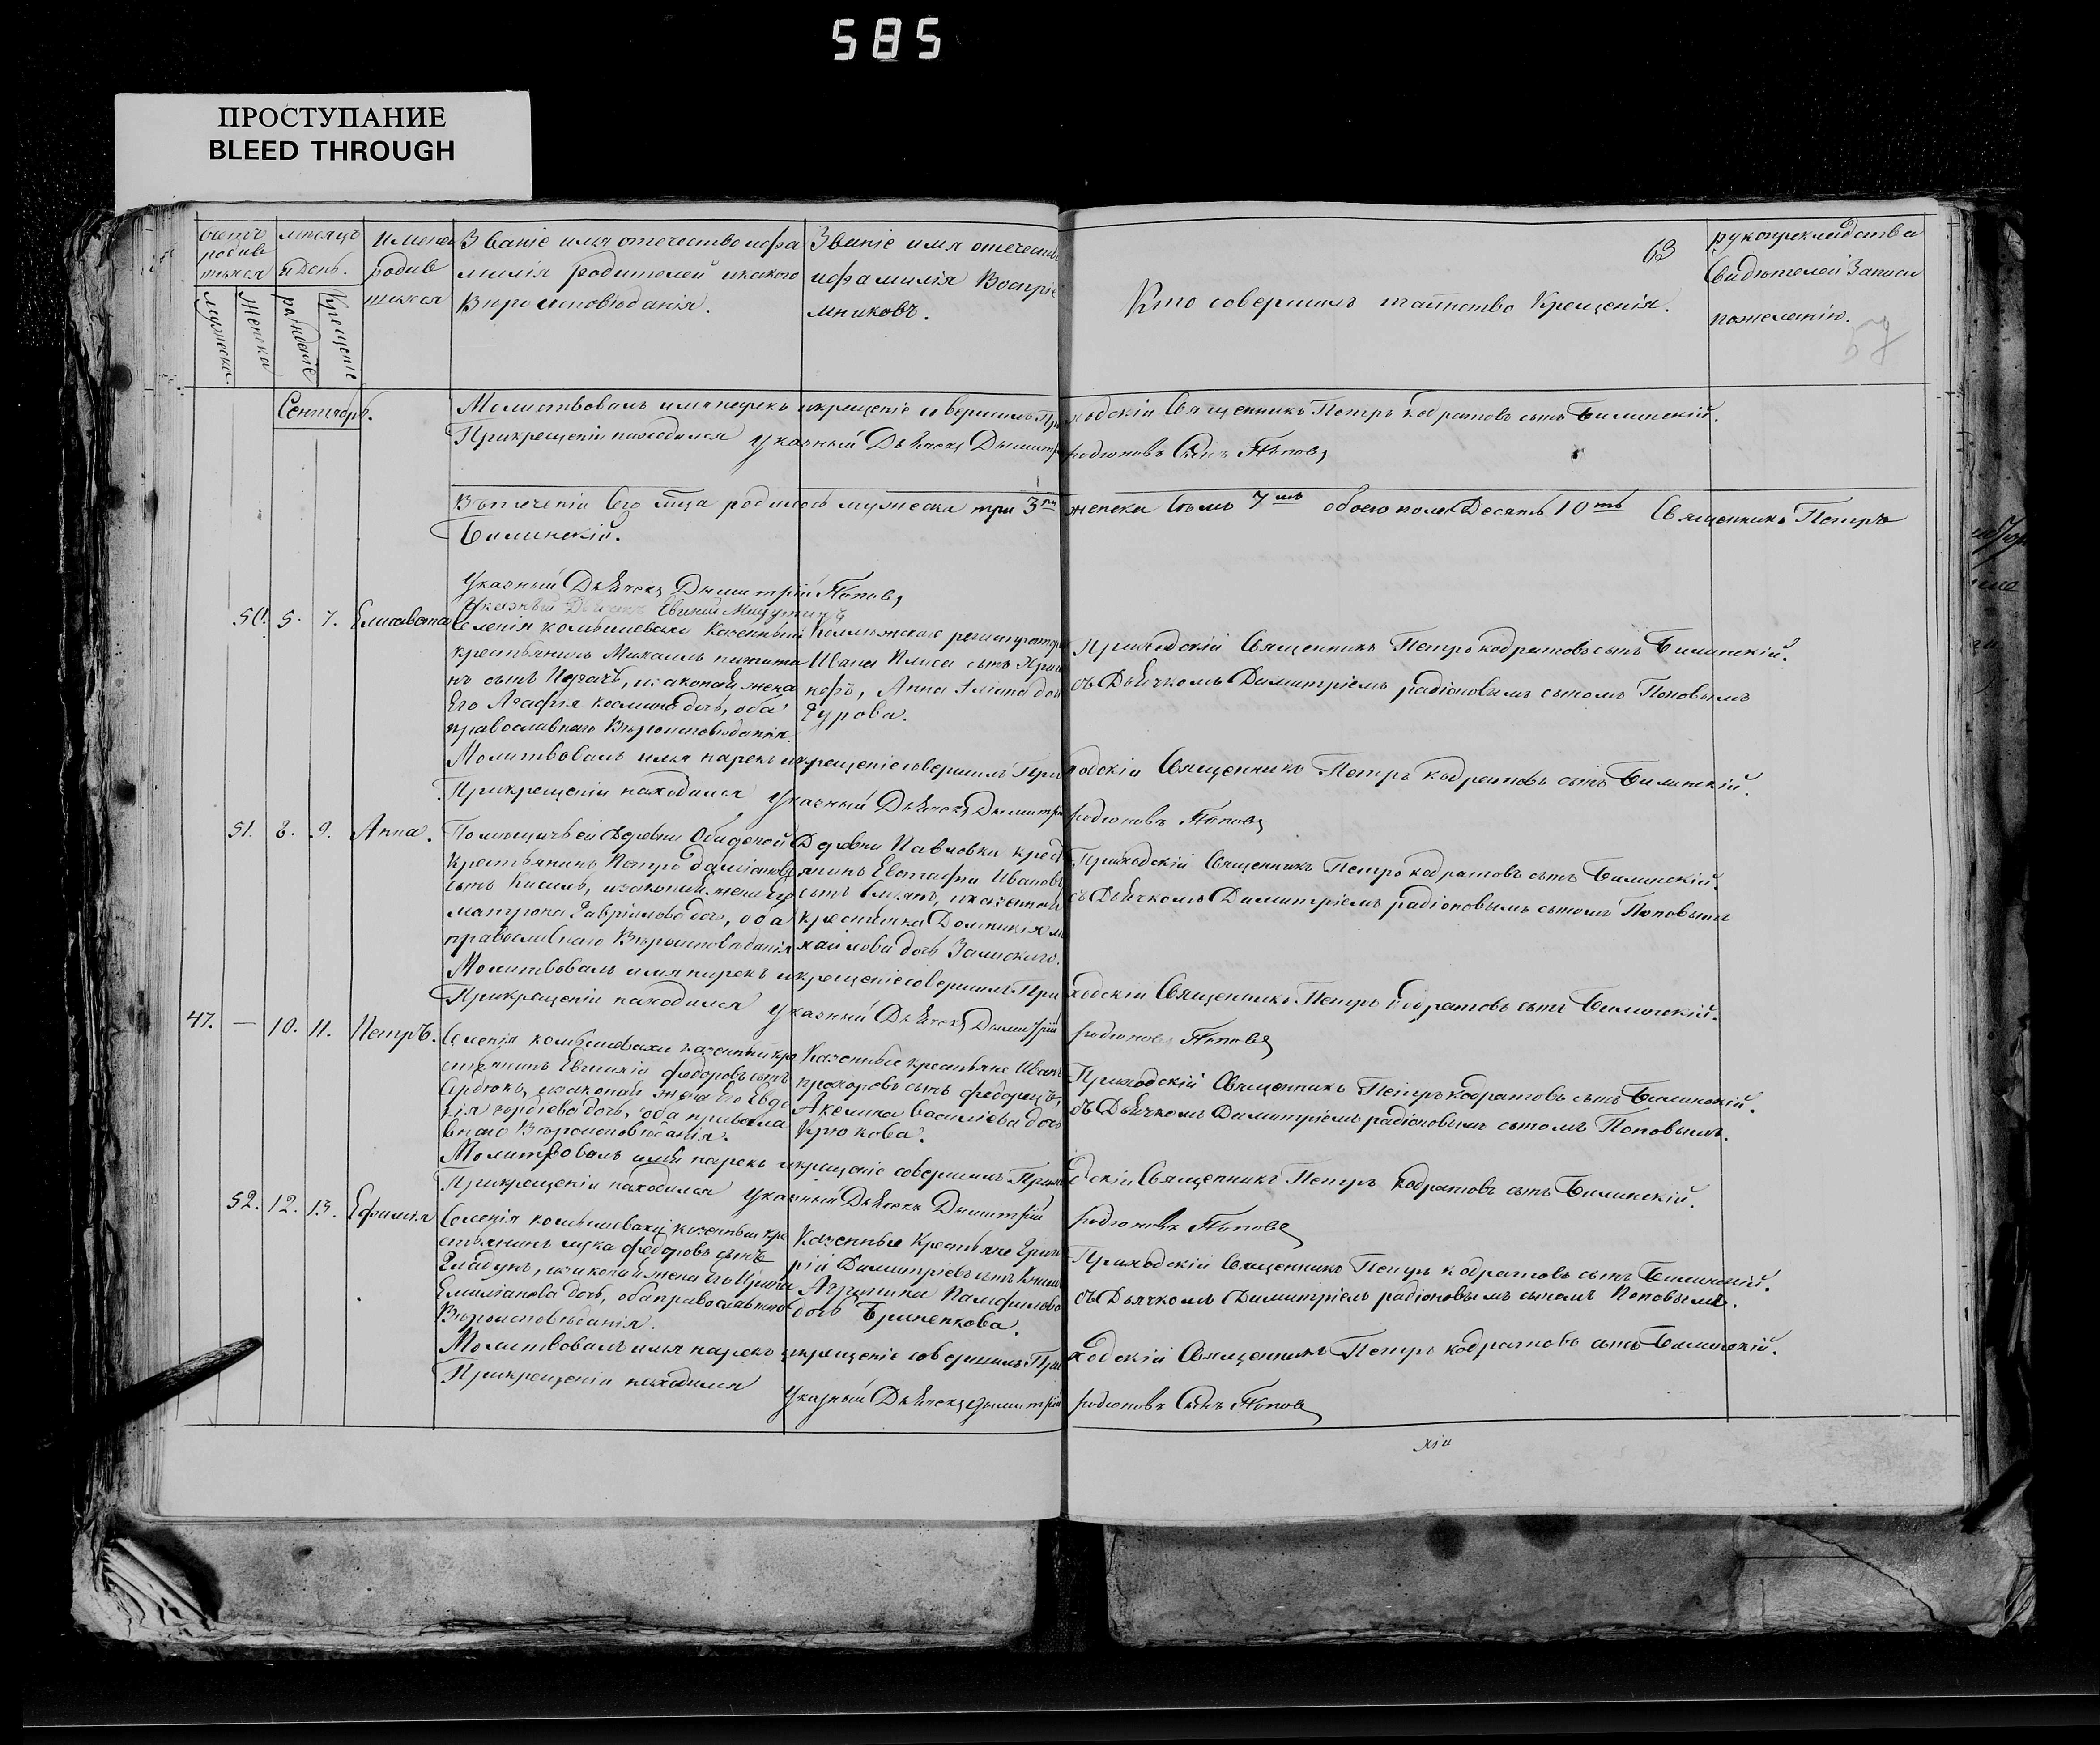 585
ПРОСТУПАНИЕ
BLEED THROUGH
счетъ родив
шихся
мужеска.
женска
мѣсяцъ
и день.
рожденіе
Крещеніе
Имена
родив
шихся
Званіе имя отечество и фа
милія родителей и какого
Вѣроисповѣданія.
Званіе имя отечество
и фамилія Воспріе
мниковъ.
Кто совершилъ таинство Крещенія.
63
рукоприкладство
Свидѣтелей Записи
пожеланію.
57
Сентябрь.
Молитвовалъ имя нарекъ и крещеніе совершилъ Приходскій Священникъ Петръ кодратовъ сынъ Билинскій.
При крещеніи находился указный Дьячекъ Димитрій родіоновъ Сынъ Поповъ
Въ теченіи Сего мѣсяца родилось мужеска три 3ри женска Семь 7мь обоего пола Десять 10ть Священникъ Петръ
Билинскій.
Указный Дьячекъ Димитрій Поповъ
50. 5. 7. Елисавета
Селенія комышевахи Казенный
крестьянинъ Михаилъ никити
нъ сынъ, изаконая жена
Его Агафія космина дочь, оба
православнаго Вѣроисповѣданія.
Коллежскаго регистратора
Ивана сынъ
Анна дочь
Гурова.
Приходскій Священникъ Петръ кодратовъ сынъ Билинскій.
съ Дьячкомъ Димитріемъ радіоновымъ сыномъ Поповымъ
Молитвовалъ имя нарекъ и крещеніе совершилъ Приходскій Священникъ Петръ кодратовъ сынъ Билинскій.
При крещеніи находился Указный Дьячекъ Димитрій родіоновъ Поповъ
51. 8. 9. Анна.
Помѣщичьей Деревни
Крестьянинъ Петръ даміановъ
сынъ Кисиль, изаконая жена его
матрона Гавріилова дочь, оба
православнаго Вѣроисповѣданія
Деревни Павловки крест
янинъ Евстафій Ивановъ
сынъ, и казенная
крестьянка Домникія ми
хайлова дочь Залиского.
Приходскій Священникъ Петръ кодратовъ сынъ Билинскій.
съ Дьячкомъ Димитріемъ радіоновымъ сыномъ Поповымъ
Молитвовалъ имя нарекъ и крещеніе совершилъ Приходскій Священникъ Петръ кодратовъ сынъ Билинскій.
При крещеніи находился указный Дьячекъ Димитрій родіоновъ Поповъ
47. — 10. 11. Петръ.
Селенія комышевахи казенный кре
стьянинъ Евгеній федоровъ сынъ
Сердюкъ, изаконая жена его Евдо
кія гордіева дочь, оба правосла
внаго Вѣроисповѣданія.
Казенные крестьяне Иванъ
прохоровъ сынъ федорецъ,
Акелина Василіева дочь
Крюкова.
Приходскій Священникъ Петръ кодратовъ сынъ Билинскій.
съ Дьячкомъ Димитріемъ радіоновымъ сыномъ Поповымъ.
Молитвовалъ имя нарекъ и крещеніе совершилъ Приходскій Священникъ Петръ кодратовъ сынъ Билинскій.
При крещеніи находился указный Дьячекъ Димитрій родіоновъ Поповъ
52. 12. 13. Ефимія
Селенія комышевахи казенный кре
стьянинъ лука федоровъ сынъ
Гладунъ, изаконая жена его Ирина
Емиліанова дочь, оба православнаго
Вѣроисповѣданія.
Казенные Крестьяне Григо
рій Димитріевъ сынъ
Агрипина Памфилова
дочь Гриненкова.
Приходскій Священникъ Петръ кодратовъ сынъ Билинскій.
съ Дьячкомъ Димитріемъ радіоновымъ сыномъ Поповымъ.
Молитвовалъ имя нарекъ и крещеніе совершилъ Приходскій Священникъ Петръ кодратовъ сынъ Билинскій.
При крещеніи находился
Указный Дьячекъ Димитрій родіоновъ Сынъ Поповъ